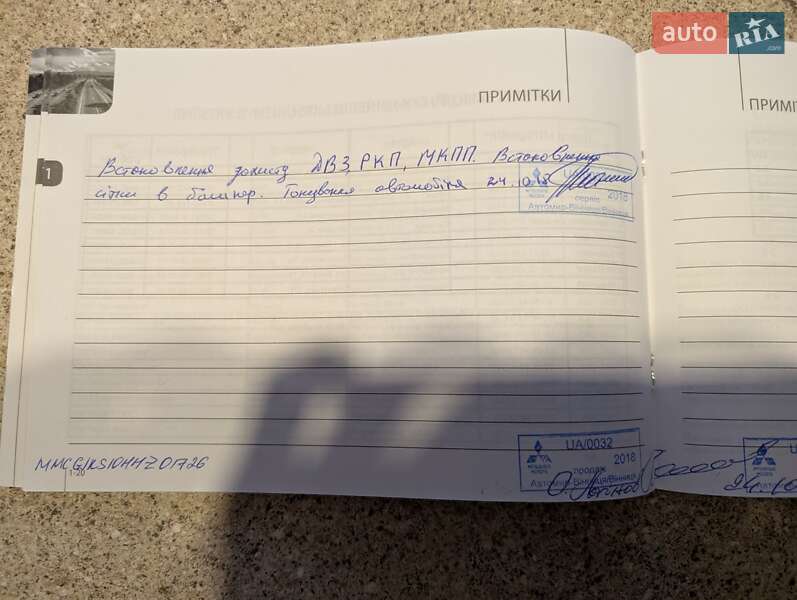 auto RIA.com
ПРИМІТКИ
ПРИМІТ
1
Встановлення захисту ДВЗ, РКП, МКПП. Встановлення
сітки в бампер. Тонування автомобіля 24.
сервіс 2018
Автомир-Вінниця/Вінниця
UA/0032
2018
MITSUBISHI MOTORS
продаж
Автомир-Вінниця/Вінниця
1-20
24.10